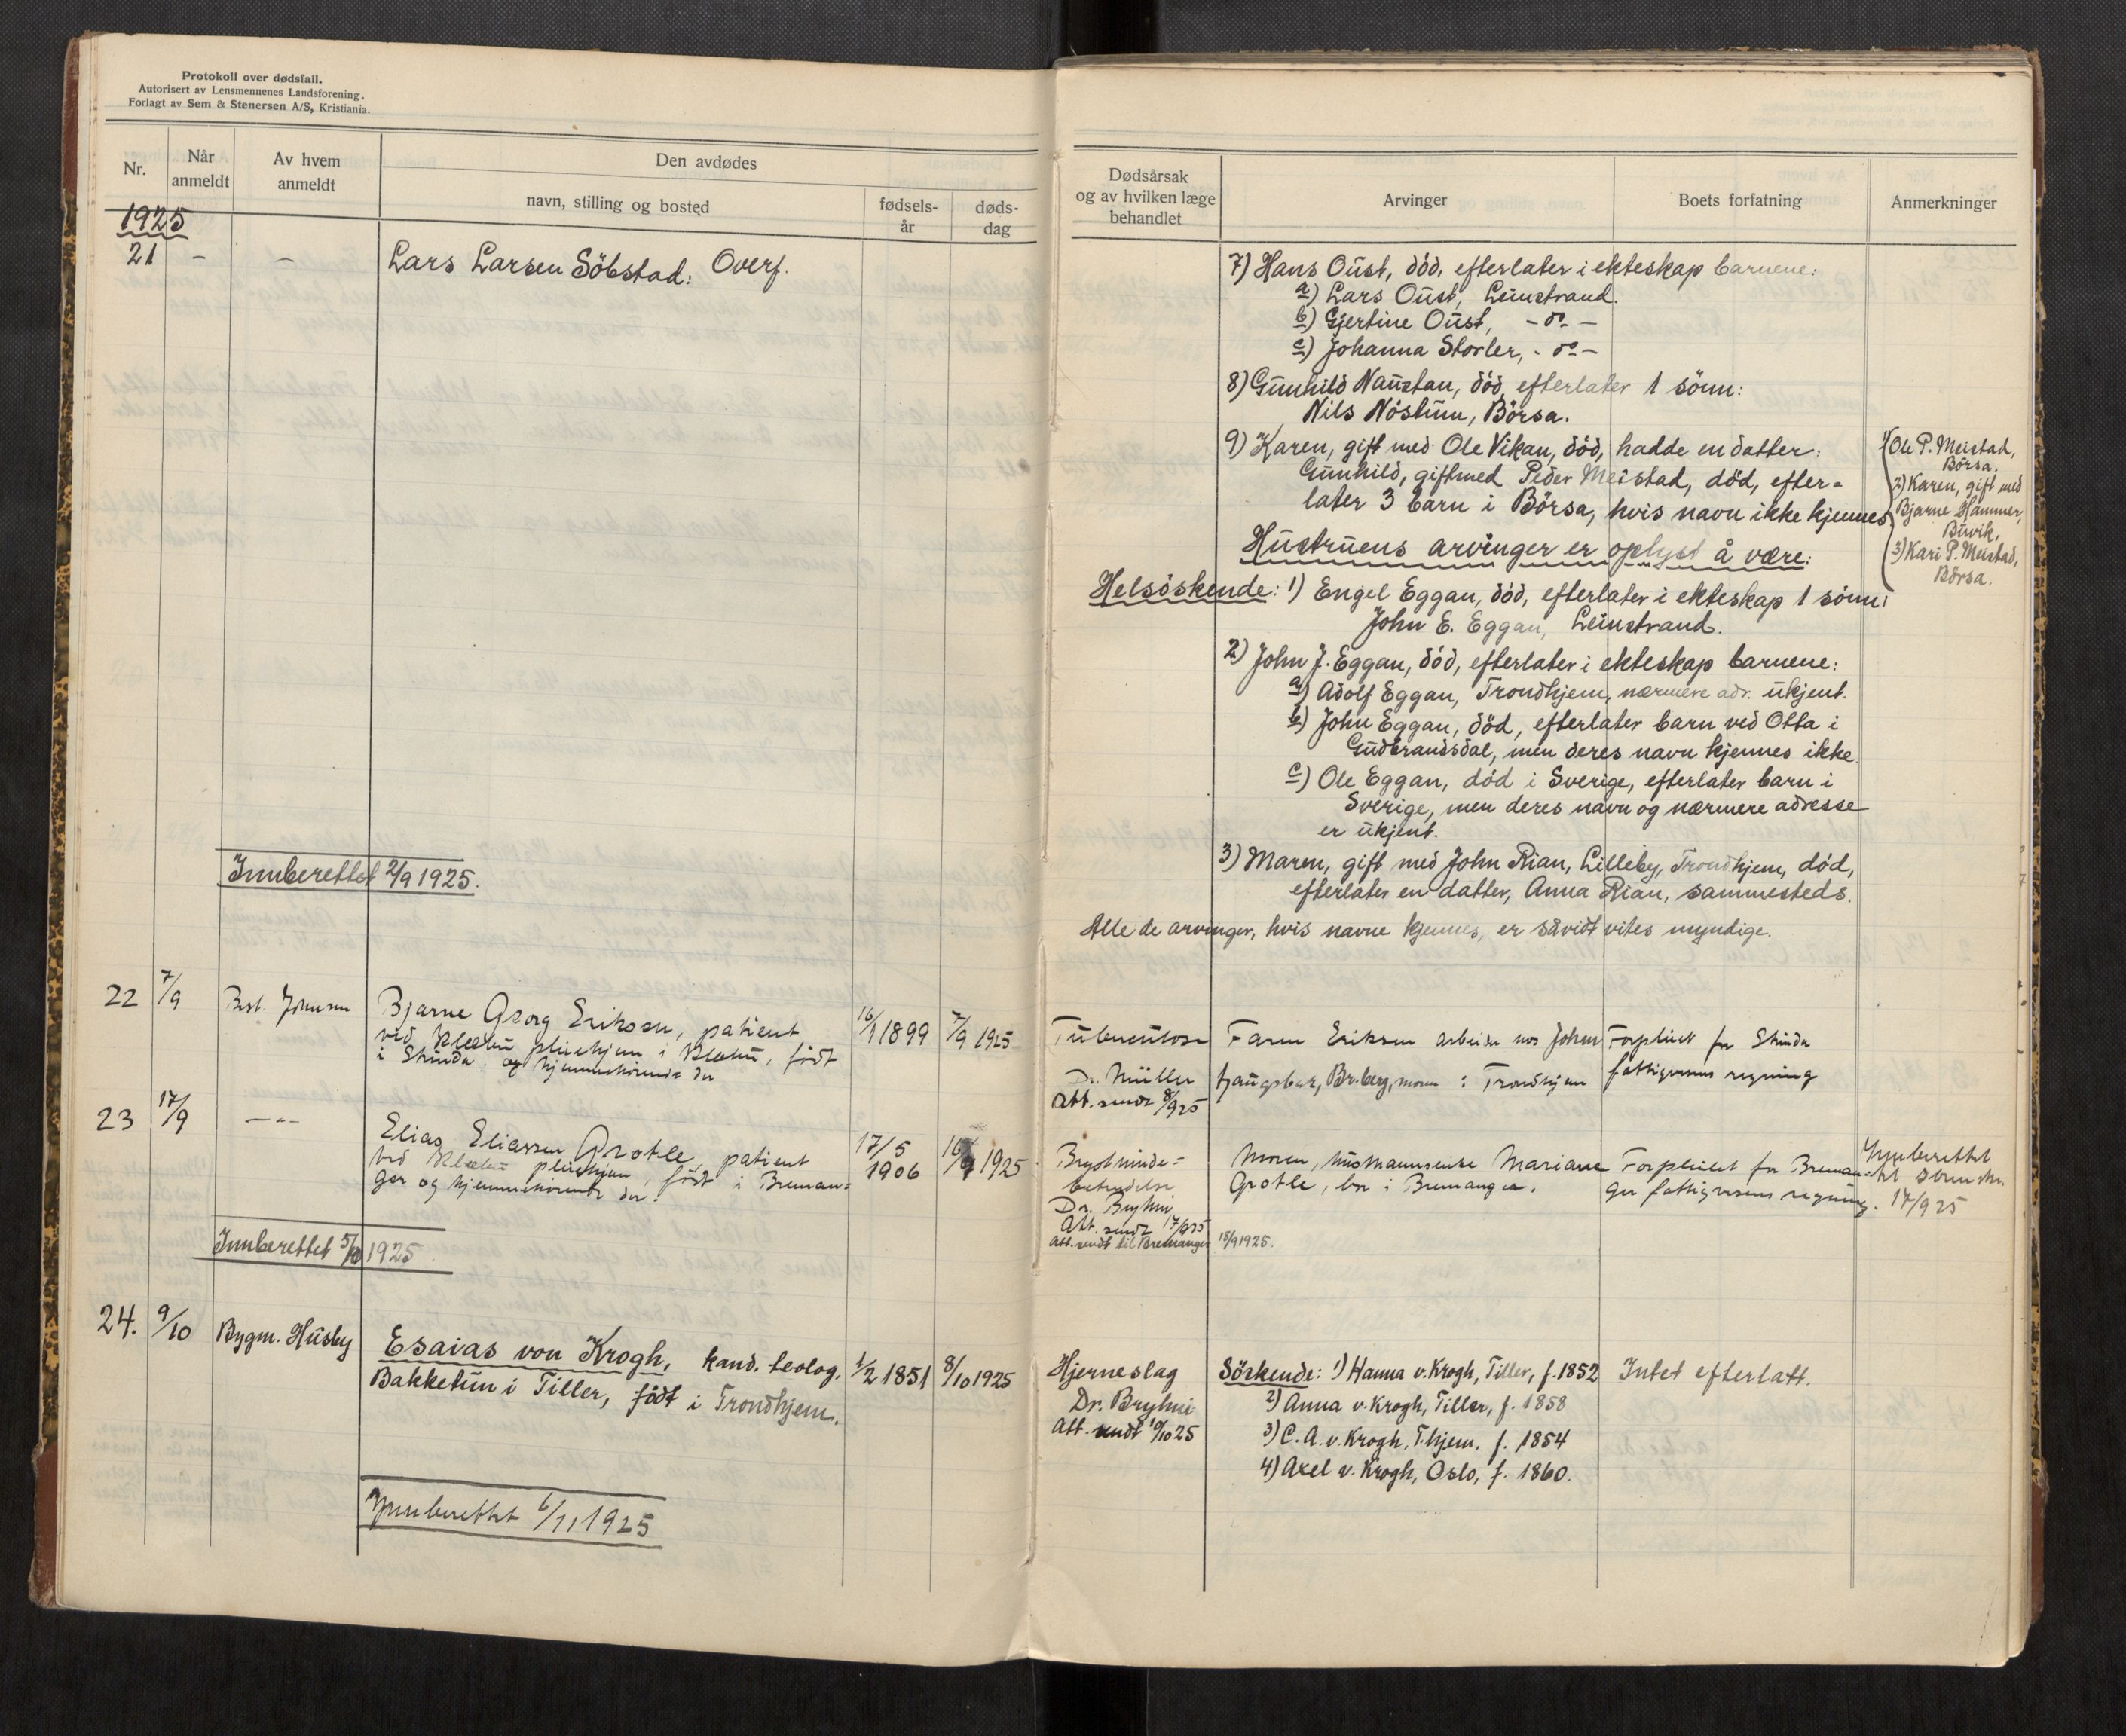 Protokoll over dødsfall.
Autorisert av Lensmennenes Landsforening.
Forlagt av Sem & Stenersen A/S, Kristiania.
Nr.
Når
anmeldt
Av hvem
anmeldt
Den avdødes
navn, stilling og bosted
fødsels-
år
døds-
dag
1925
21 - - Lars Larsen Söbstad: Overf.
Innberettet 2/9 1925.
22 7/9 Best. Johnsen Bjarne Georg Eriksen, patient
ved Klæbu pleiehjem i Klæbu, født
i Strinda og hjemmehörende der
16/1 1899 7/9 1925
23 17/9 -"- Elias Eliassen Grotle, patient
ved Klæbu pleiehjem, født i Breman=
ger og hjemmehörende der.
17/5
1906
16/9 1925
Innberettet 5/10 1925
24. 9/10 Bygm. Husby Esaias von Krogh, kand. teolog.
Bakketun i Tiller, født i Trondhjem.
1/2 1851 8/10 1925
Innberettet 6/11 1925
Dødsårsak
og av hvilken læge
behandlet
Arvinger
Boets forfatning
Anmerkninger
7) Hans Oust, död, efterlater i ekteskap barnene:
a) Lars Oust, Leinstrand.
b) Gjertine Oust, - do -
c) Johanna Storler, - do -
8) Gunhild Naustan, död, efterlater 1 sönn:
Nils Nöstum, Börsa.
9) Karen, gift med Ole Vikan, död, hadde en datter:
Gunhild, gift med Peder Meistad, död, efter=
later 3 barn i Börsa, hvis navn ikke kjennes
1) Ole P. Meistad,
Börsa.
2) Karen, gift med
Bjarne Hammer,
Buvik,
3) Kari P. Meistad,
Börsa.
Hustruens arvinger er oplyst å være:
Helsöskende: 1) Engel Eggan, död, efterlater i ekteskap 1 sönn:
John E. Eggan, Leinstrand.
2) John J. Eggan, död, efterlater i ekteskap barnene:
a) Adolf Eggan, Trondhjem, nærmere adr. ukjent.
b) John Eggan, död, efterlater barn ved Otta i
Gudbrandsdal, men deres navn kjennes ikke.
c) Ole Eggan, död i Sverige, efterlater barn i
Sverige, men deres navn og nærmere adresse
er ukjent.
3) Maren, gift med John Rian, Lilleby, Trondhjem, död,
efterlater en datter, Anna Rian, sammesteds.
Alle de arvinger, hvis navne kjennes, er såvidt vites myndige.
Tuberculose
Dr. Müller
Att. sendt 8/9 25
Faren Eriksen arbeider hos Johan
Br.berg, moren i Trondhjem
Forpleiet for Strinda
fattigvesens regning
Brysthinde=
betendelse
Dr. Bryhni
Att. sendt 17/9 25
Att. sendt til Bremanger 18/9 1925.
Moren, husmannsenke Mariane
Grotle, bor i Bremanger.
Forpleiet for Breman=
ger fattigvesens regning.
Innberettet
til
17/9 25
Hjerneslag
Dr. Bryhni
Att. sendt 10/10 25
Söskende: 1) Hanna v. Krogh, Tiller, f. 1852
2) Anna v. Krogh, Tiller, f. 1858
3) C. A. v. Krogh, T.hjem. f. 1854
4) Axel v. Krogh, Oslo, f. 1860.
Intet efterlatt.